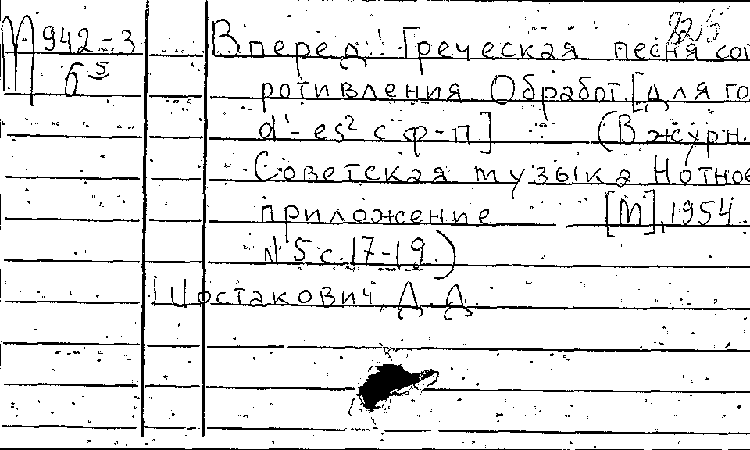 М942-3 Вперед! Греческая песня соп
б⁵ ротивления Обработ. [для го
d¹-es² с ф-п] (В журн.
Советская музыка Нотное
приложение [М], 1954.
№5 с. 17-19.)
Шостакович, Д. Д.